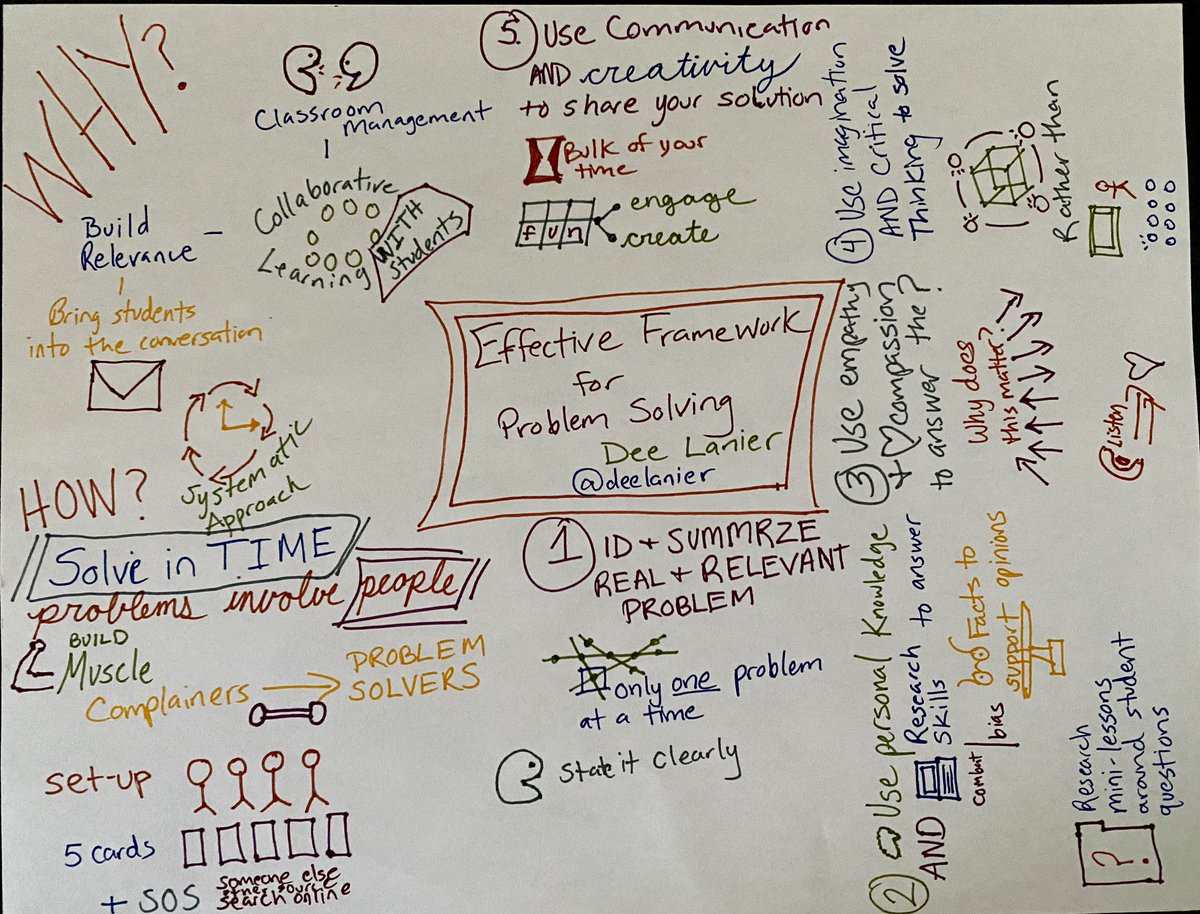 WHY?
Classroom
Management
Collaborative
Learning
WITH
students
Build
Relevance
Bring students
into the conversation
Systematic
Approach
HOW?
Solve in TIME
problems involve people
BUILD
Muscle
Complainers
PROBLEM
SOLVERS
set-up
5 cards
+ SOS
someone else
other source
search online
Effective Framework
for
Problem Solving
Dee Lanier
@deelanier
1 ID + SUMMRZE
REAL + RELEVANT
PROBLEM
only one problem
at a time
State it clearly
2 Use personal Knowledge
AND Research to answer
Skills
combat bias
Facts to
support opinions
Research
mini-lessons
around student
questions
?
3 Use empathy
+ compassion
to answer the ?
Why does
this matter?
Listen
4 Use imagination
AND Critical
Thinking to solve
Rather than
5. Use Communication
AND creativity
to share your solution
Bulk of your
time
fun
engage
create